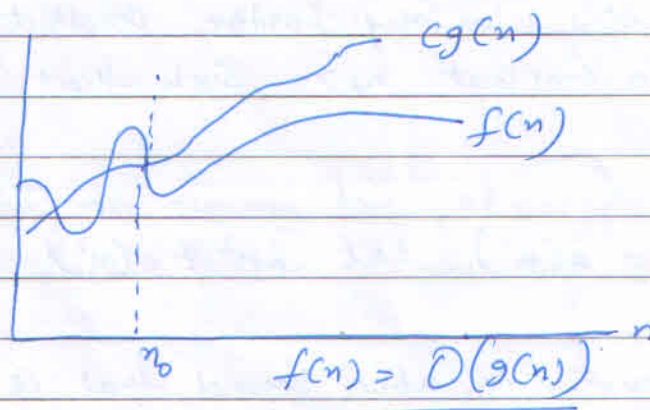 cg(n)
f(n)
n
n₀
f(n) = O(g(n))